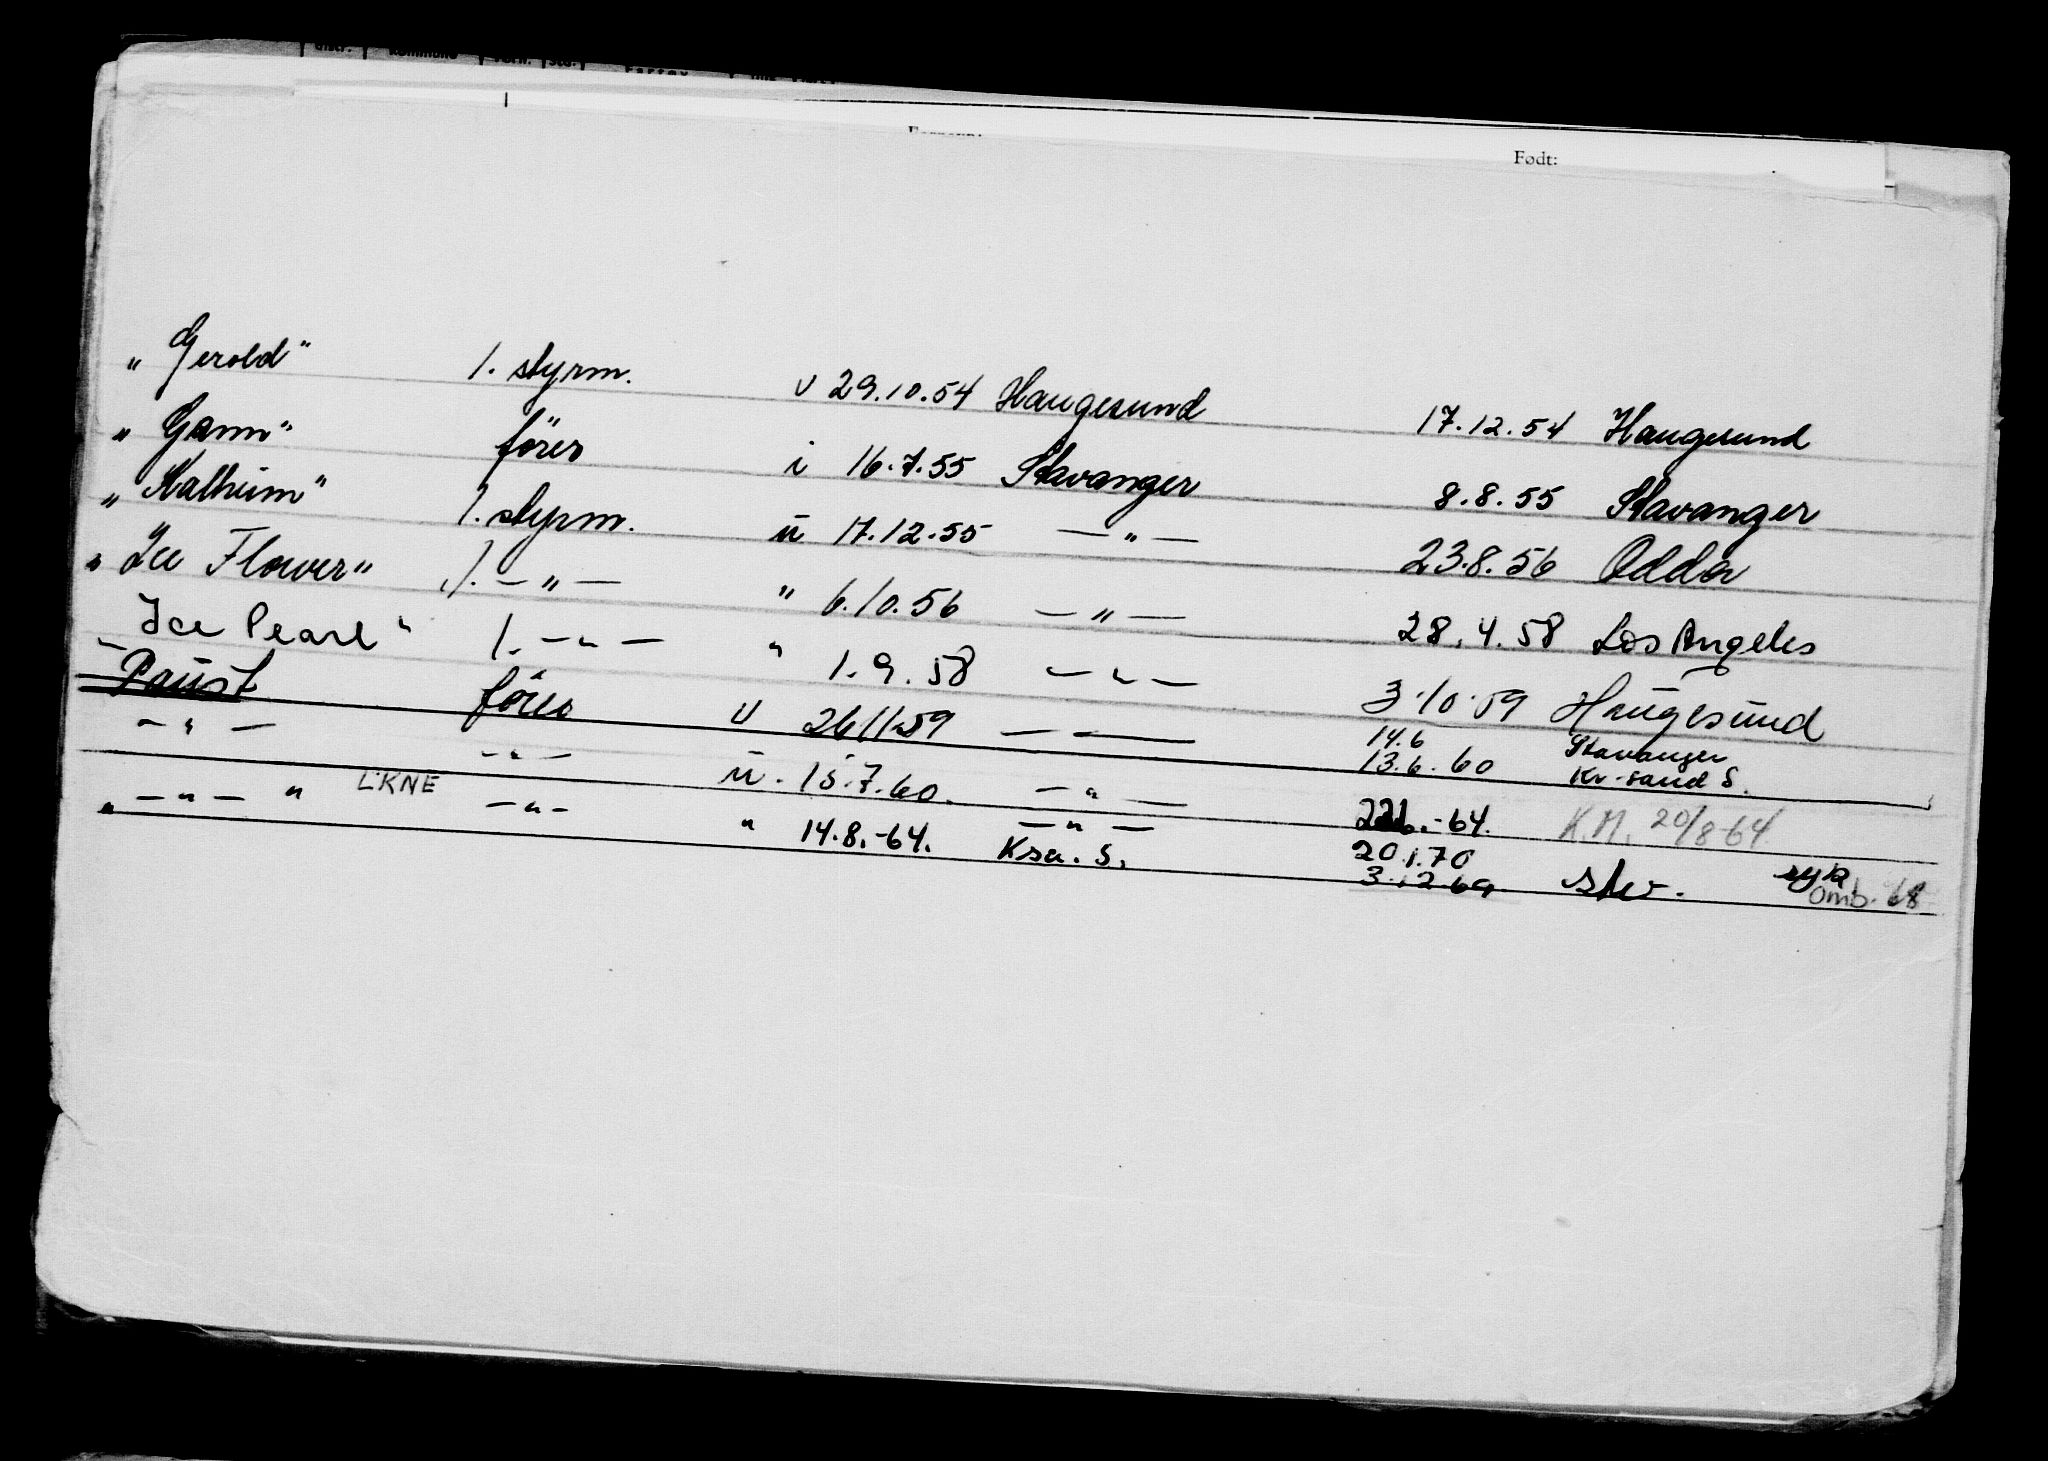 Født:
„ Gerold " 1. styrm. v 29.10.54 Haugesund 17.12.54 Haugesund
„ Gann" förer i 16.7.55 Stavanger 8.8.55 Stavanger
„ Malheim" 1. styrm. u 17.12.55 — " — 23.8.56 Odda
„ Ice Flower" 1. — " — " 6.10.56 — " — 28.4.58 Los Angeles
" Ice Pearl " 1. — " — " 1.9.58 — " — 3.10.59 Haugesund
Faust förer v 26/11-59 — — 14.6 Stavanger
13.6.60 Kr-sand S.
— " — — " — u. 15.7.60. — " — -64. K.M. 20/8-64
„ — " — " LKNE — " — " 14.8.-64. — " — 20.1.70
Krsa. S. 3.12 69 Stv. syk
omb. 68